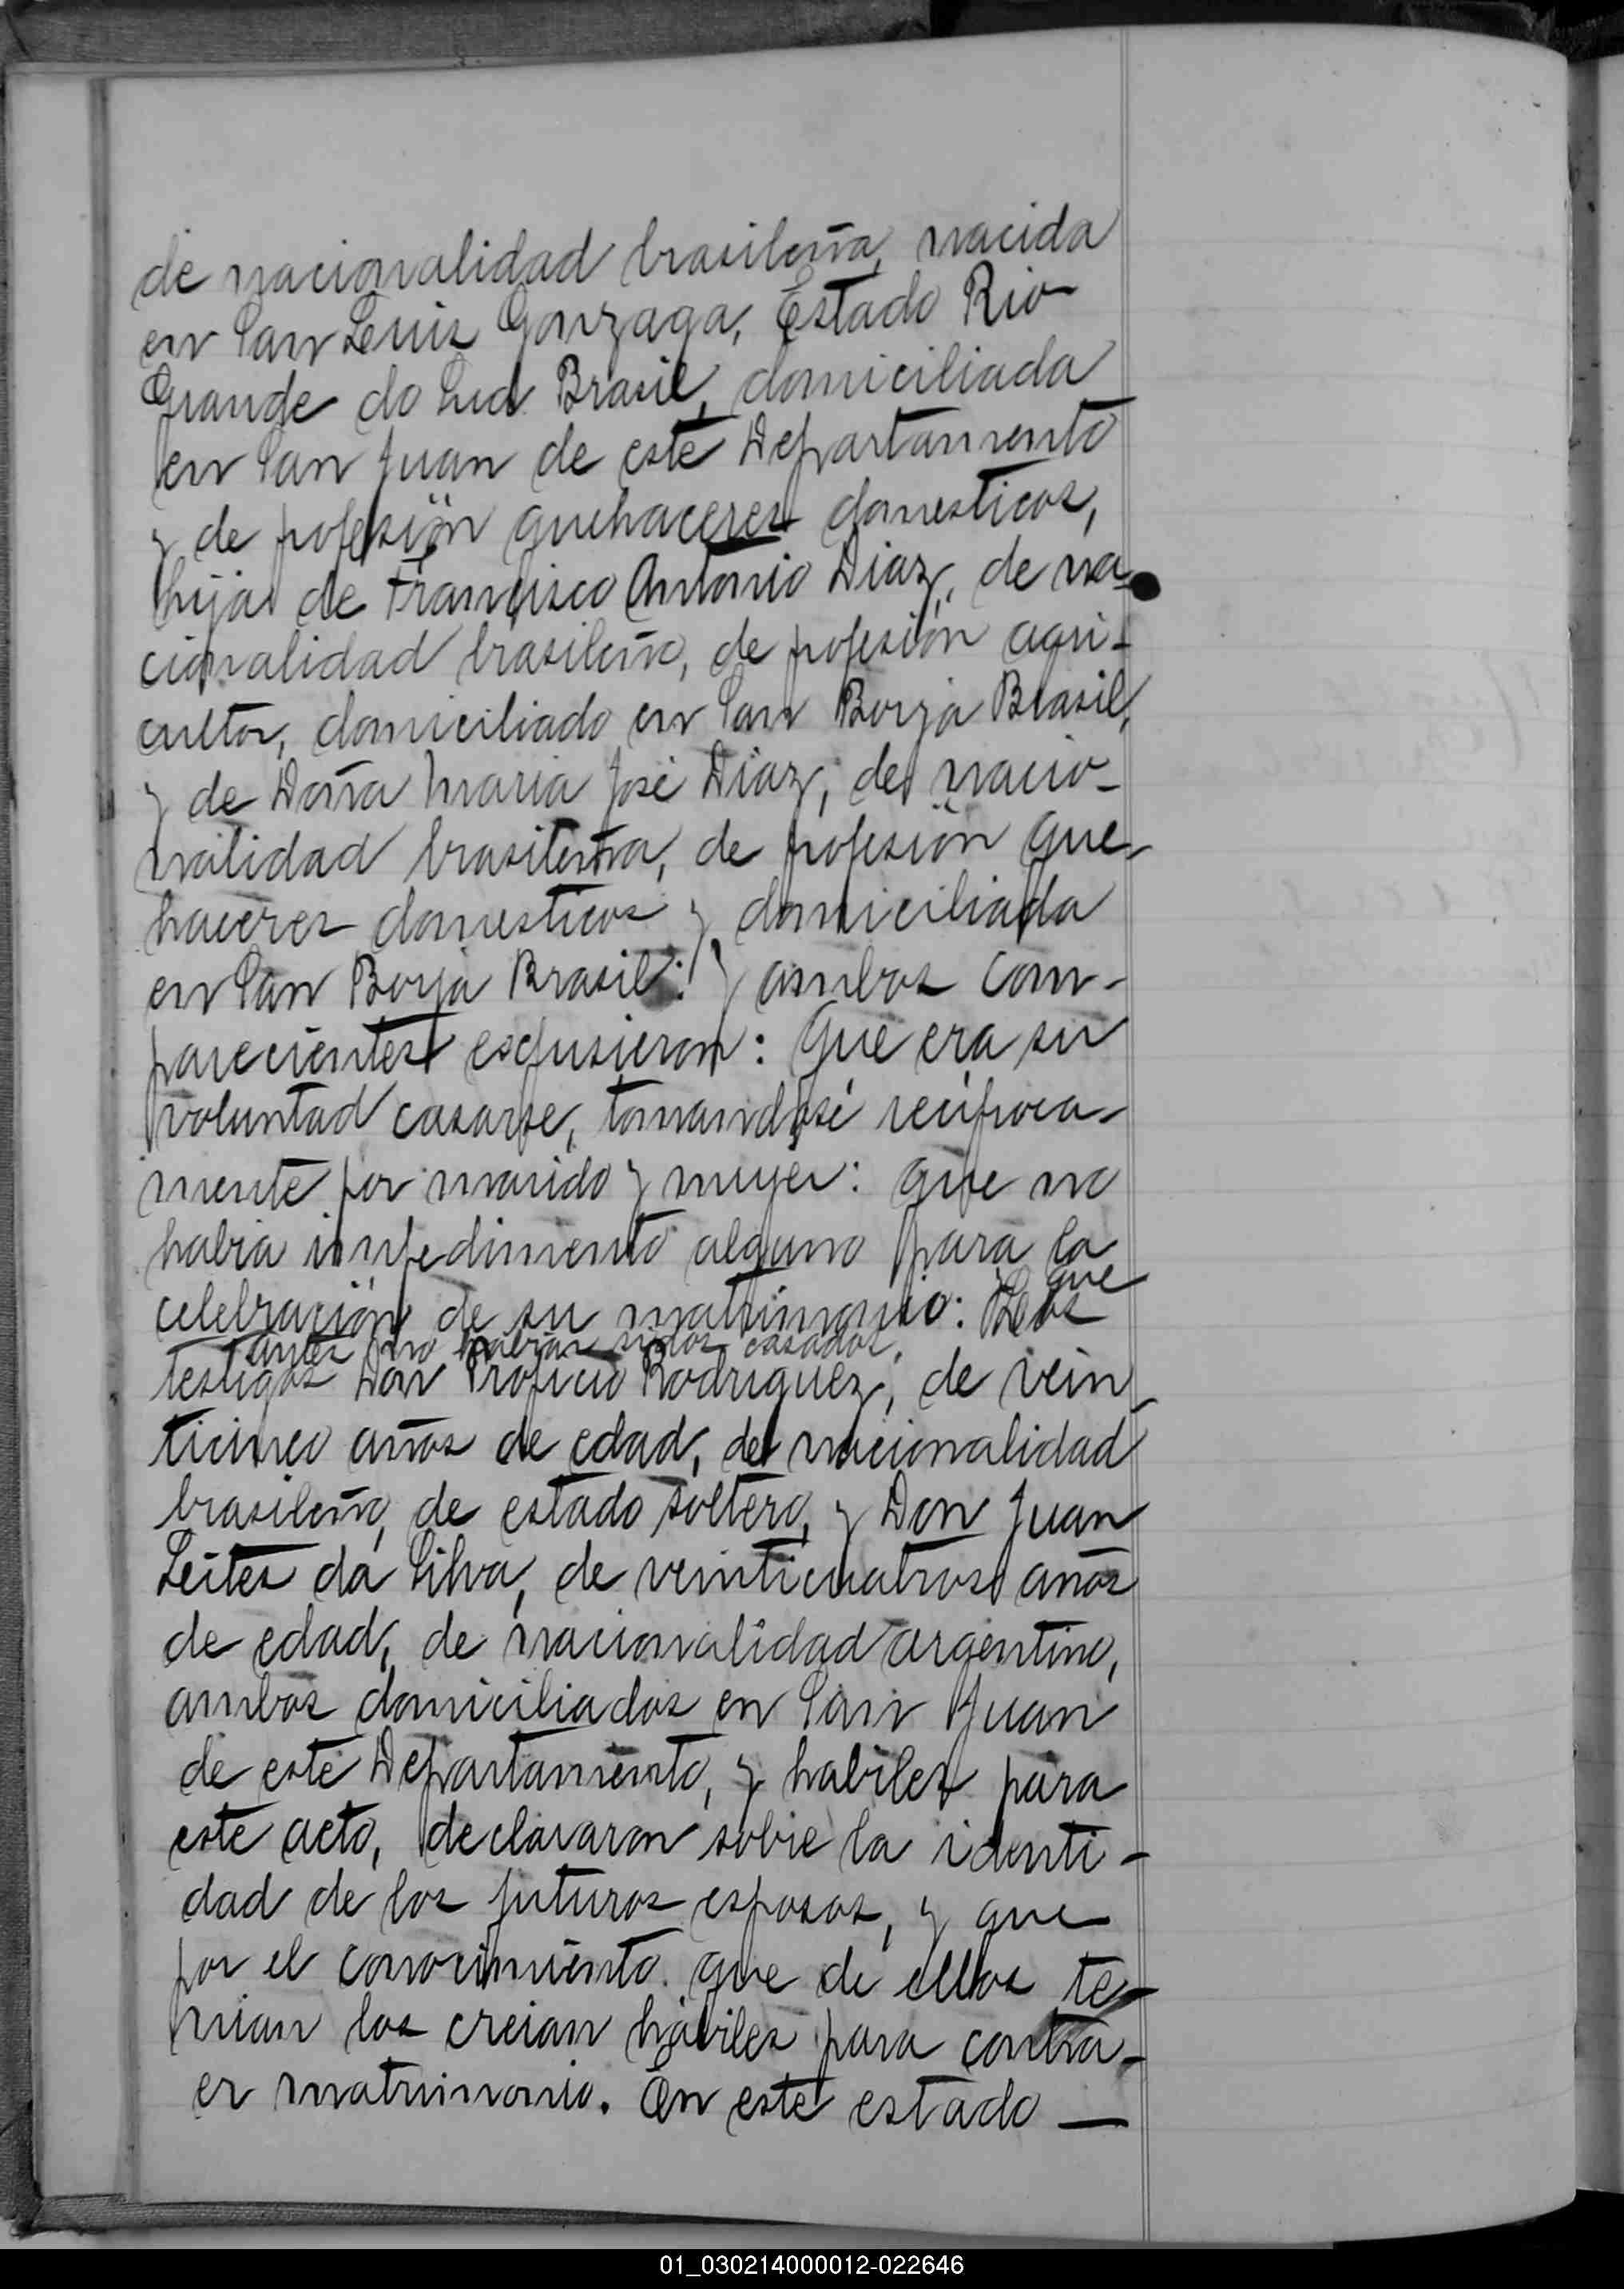 de nacionalidad brasileña, nacida
en San Leuis Gonzaga, Estado Rio
Grande do Sud Brasil, domiciliada
en San Juan de este Departamento
y de pofesiön quehaceres domesticos,
hija de Francisco Antonio Diaz, de na-
cionalidad brasileño, de pofesión agri-
cultor, domiciliado en San Borja Brasil,
y de Doña Maria José Diaz, de nacio-
nalidad brasileña, de pofesión que-
haceres domesticos y domiciliada
en San Borja Brasil: Y ambos com-
parecientes espusieron: Que era su
voluntad casarse, tomandose recíproca-
mente por marido y mujer: que no
habia impedimento alguno para la
celebración de su matrimonio: Los que
antes no habian sidos casados.
testigos Don Proficio Rodriguez, de vein-
ticinco años de edad, de nacionalidad
brasileño, de estado soltero, y Don Juan
Leites da Silva, de veinticuatros años
de edad, de nacionalidad argentino,
ambos domiciliados en San Juan
de este Departamento, y habiles para
este acto, declararon sobre la identi-
dad de los futuros esposos, y que
por el conocimiento que de ellos te-
nian los creian hábiles para contra-
er matrimonio. En este estado —
01_030214000012-022646